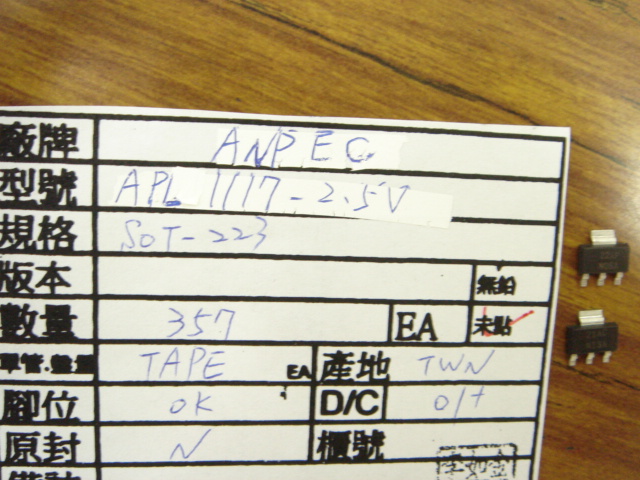 廠牌 ANPEC
型號 APL 1117-2.5V
規格 SOT-223
版本 無鉛
數量 357 EA 未點
單管.盤量 TAPE EA 產地 TWN
腳位 OK D/C 01+
原封 N 櫃號